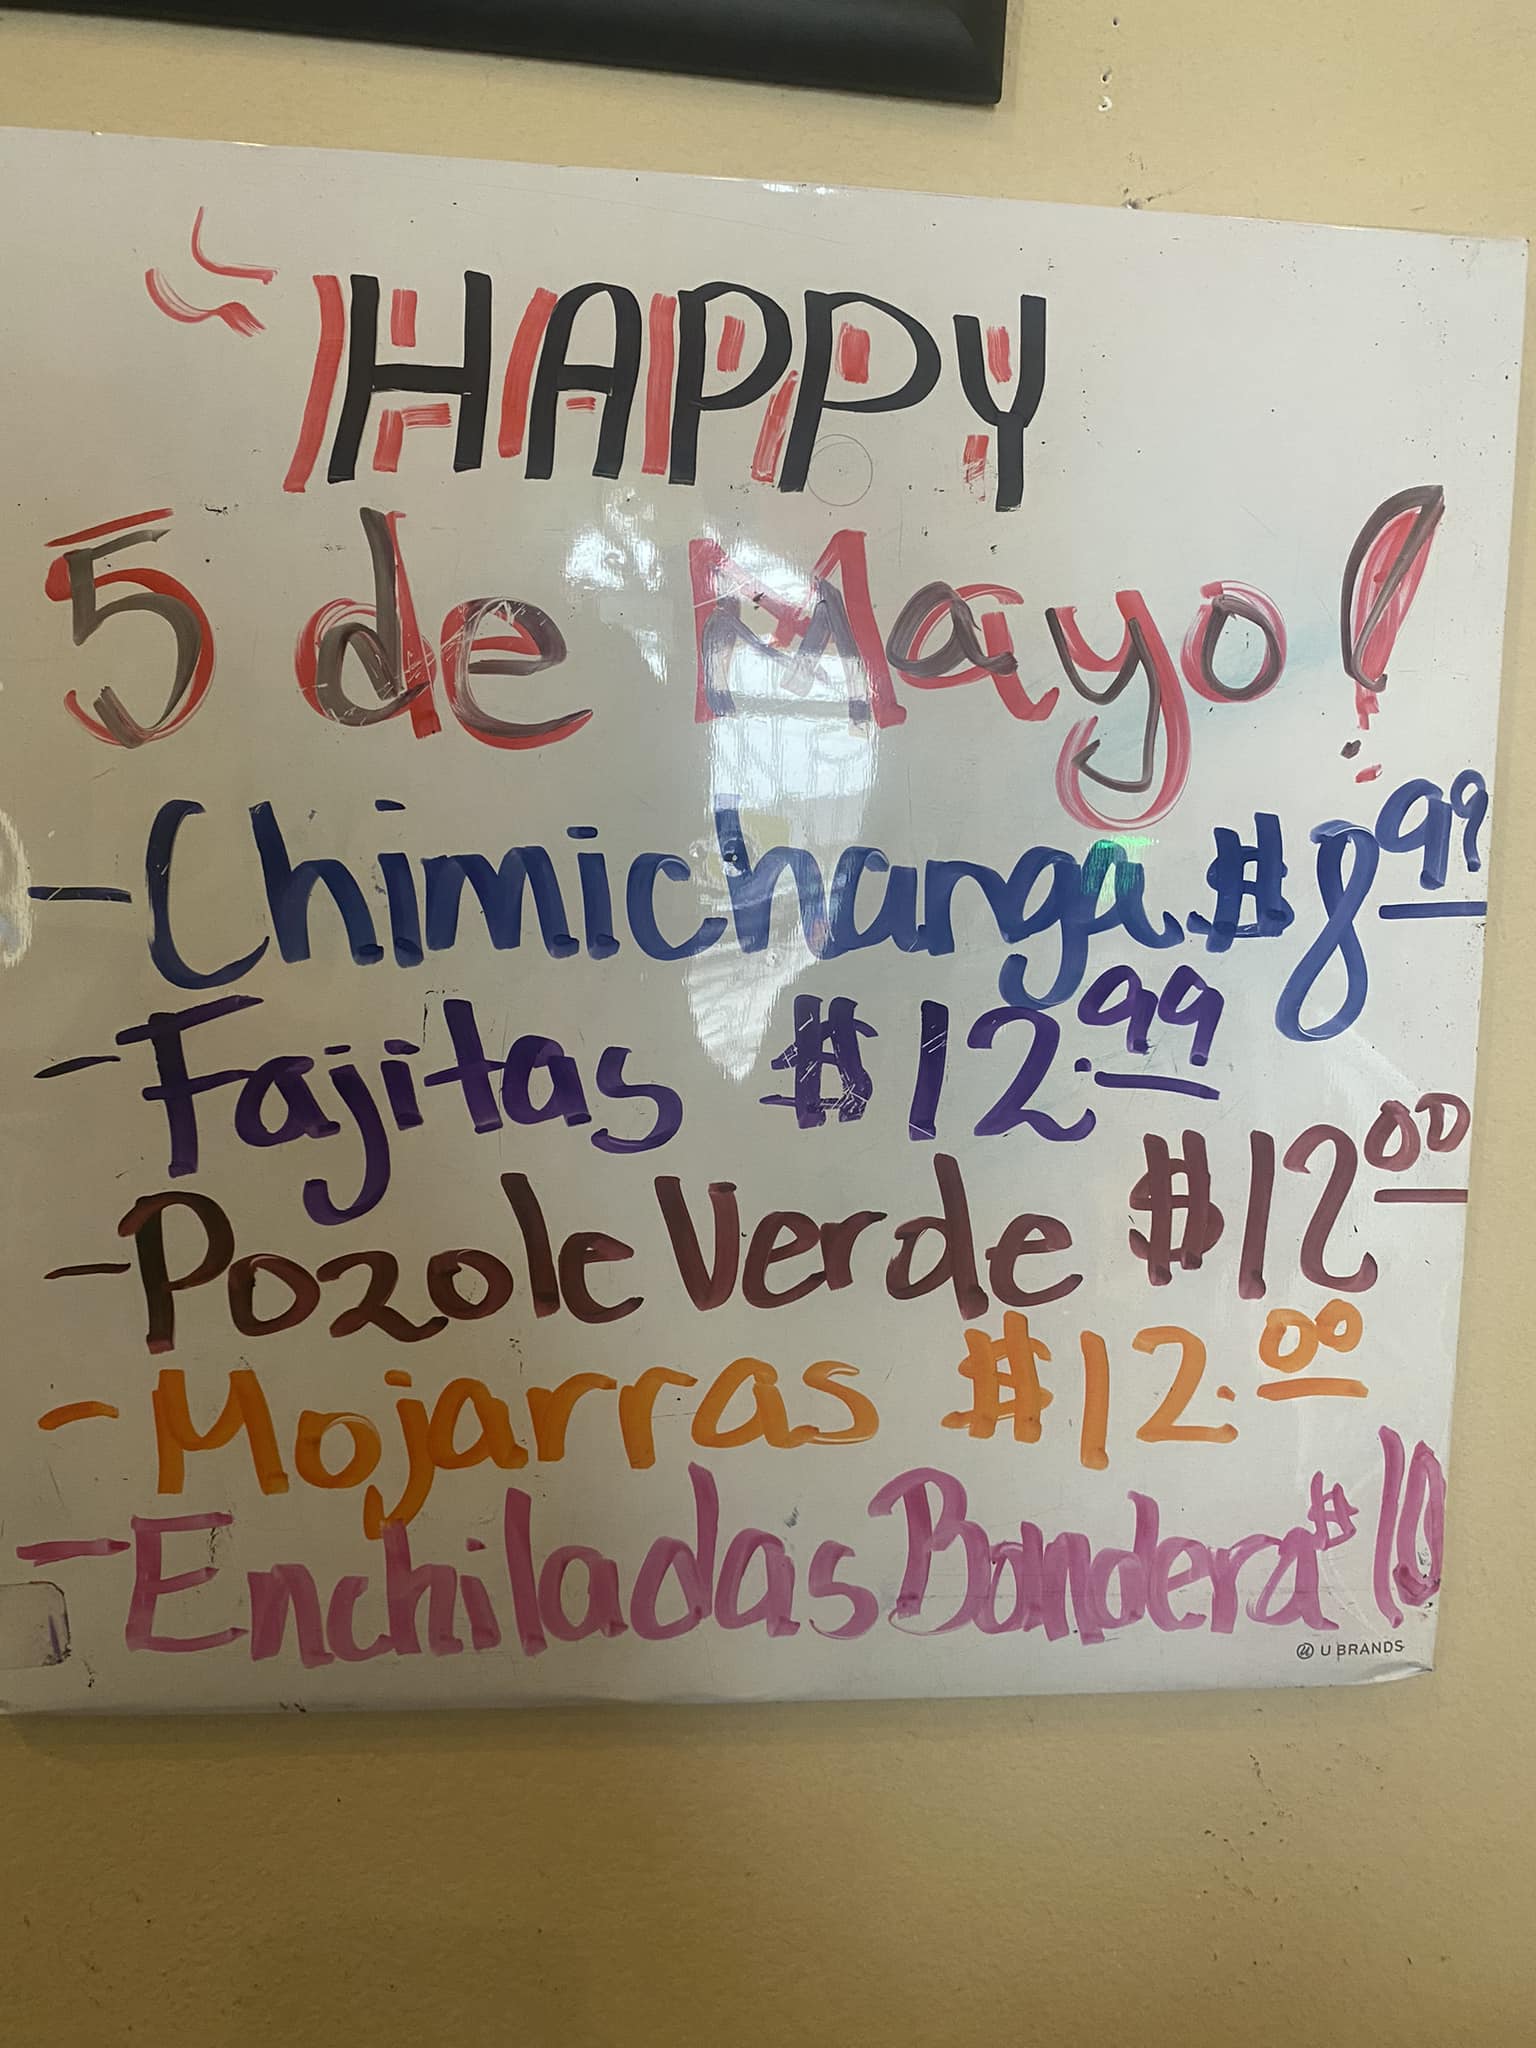 HAPPY
5 de Mayo!
- Chimichanga $8.99
- Fajitas $12.99
- Pozole Verde $12.00
- Mojarras $12.00
- Enchiladas Bandera $10
U BRANDS